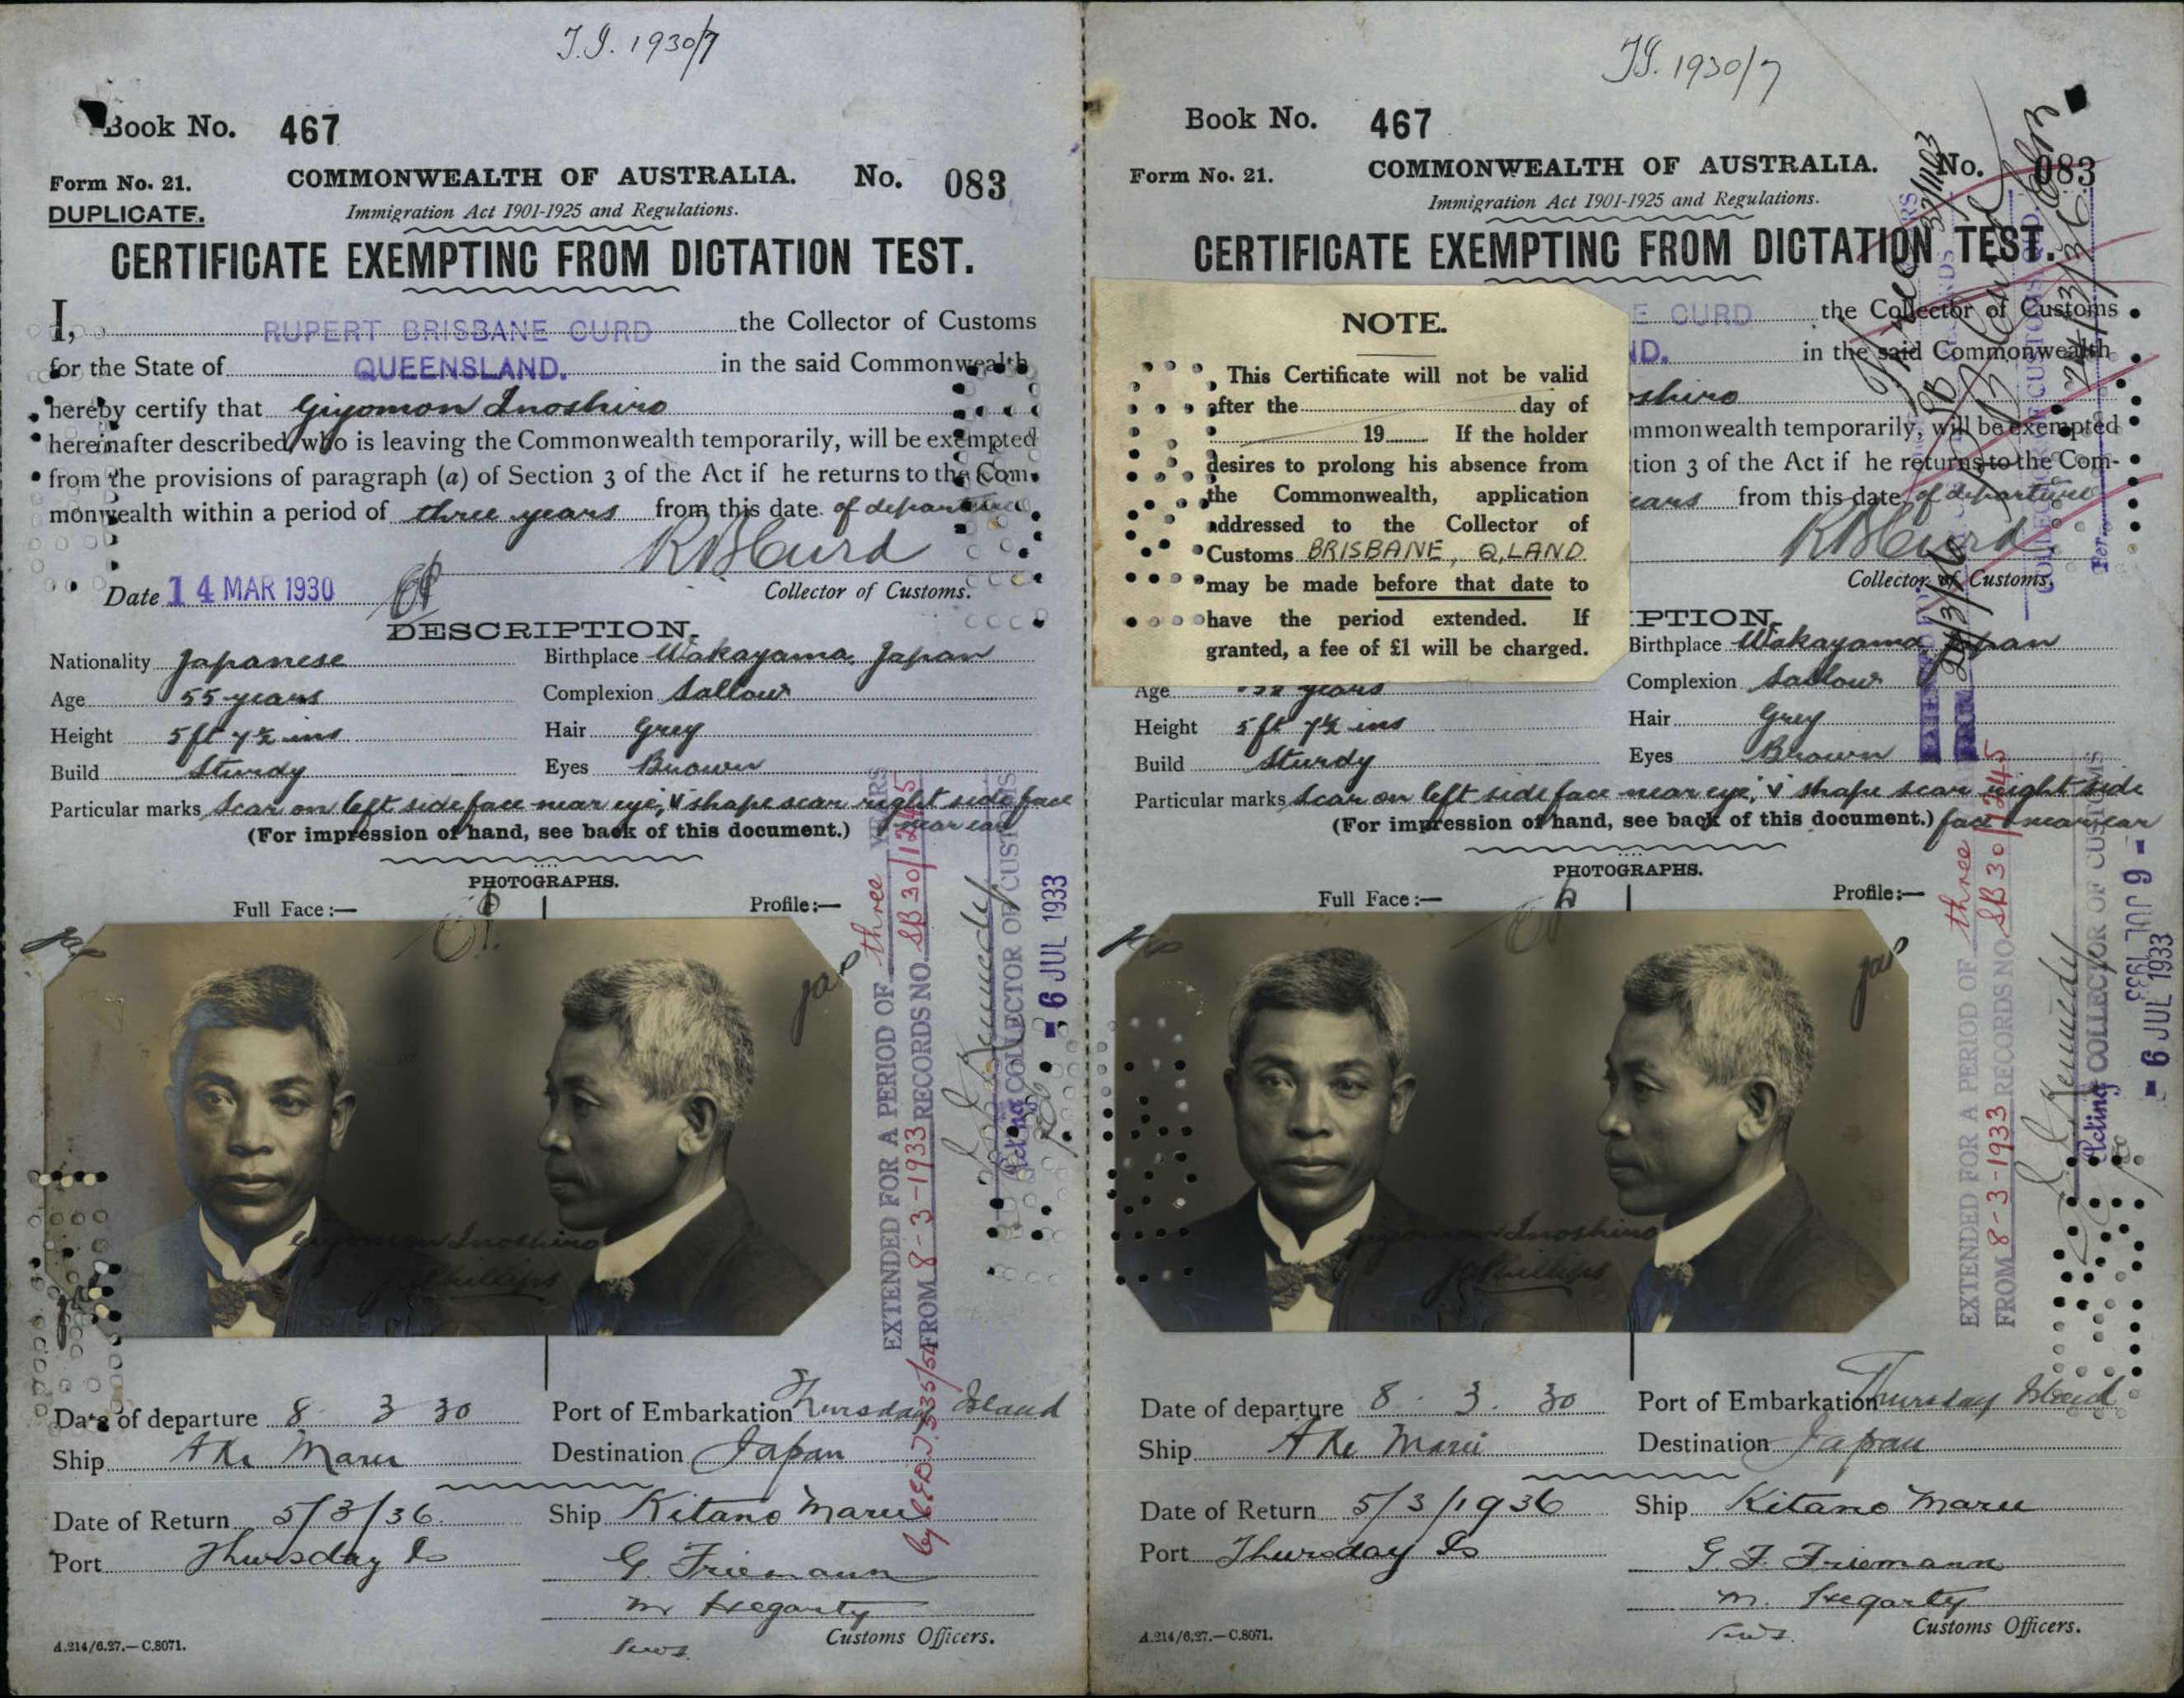 T.I. 1930/7
Book No. 467
Form No. 21.
DUPLICATE.
COMMONWEALTH OF AUSTRALIA.
No. 083
Immigration Act 1901-1925 and Regulations.
CERTIFICATE EXEMPTING FROM DICTATION TEST.
I, RUPERT BRISBANE CURD the Collector of Customs
for the State of QUEENSLAND. in the said Commonwealth
hereby certify that Giyomon Inoshiro
hereinafter described, who is leaving the Commonwealth temporarily, will be exempted
from the provisions of paragraph (a) of Section 3 of the Act if he returns to the Com-
monwealth within a period of three years from this date of departure
R B Curd
Date 14 MAR 1930
Collector of Customs.
DESCRIPTION.
Nationality Japanese Birthplace Wakayama, Japan
Age 55 years Complexion Sallow
Height 5 ft 7½ ins Hair Grey
Build Sturdy Eyes Brown
Particular marks Scar on left side face near eye, V shape scar right side face
near ear
(For impression of hand, see back of this document.)
PHOTOGRAPHS.
Full Face :— Profile :—
Giyomon Inoshiro
Phillips
EXTENDED FOR A PERIOD OF three YEARS
FROM 8-3-1933 RECORDS NO. SB 30/1245
Kennedy
Acting COLLECTOR OF CUSTOMS
- 6 JUL 1933
Date of departure 8 3 30 Port of Embarkation Thursday Island
Ship Aki Maru Destination Japan
Date of Return 5/3/36. Ship Kitano Maru
Port Thursday Is
G. Friemann
M Hegarty
Customs Officers.
A.214/6.27.—C.8071.
T.I. 1930/7
Book No. 467
Form No. 21.
COMMONWEALTH OF AUSTRALIA.
No. 083
Immigration Act 1901-1925 and Regulations.
CERTIFICATE EXEMPTING FROM DICTATION TEST.
NOTE.
This Certificate will not be valid
after the day of
19 If the holder
desires to prolong his absence from
the Commonwealth, application
addressed to the Collector of
Customs BRISBANE, Q,LAND
may be made before that date to
have the period extended. If
granted, a fee of £1 will be charged.
E CURD the Collector of Customs
ND. in the said Commonwealth
oshiro
mmonwealth temporarily, will be exempted
tion 3 of the Act if he returns to the Com-
ears from this date of departure
R B Curd
Collector of Customs.
PTION.
Birthplace Wakayama, Japan
Age years Complexion Sallow
Height 5 ft 7½ ins Hair Grey
Build Sturdy Eyes Brown
Particular marks Scar on left side face near eye, V shape scar right side
(For impression of hand, see back of this document.) face near ear
PHOTOGRAPHS.
Full Face :— Profile :—
Giyomon Inoshiro
Phillips
EXTENDED FOR A PERIOD OF three
FROM 8-3-1933 RECORDS NO. SB 30/1245
Kennedy
Acting COLLECTOR OF CUSTOMS
- 6 JUL 1933
- 6 JUL 1933
Date of departure 8. 3. 30 Port of Embarkation Thursday Island
Ship Aki Maru Destination Japan
Date of Return 5/3/1936 Ship Kitano Maru
Port Thursday Is
G. F. Friemann
M. Hegarty
Customs Officers.
A.214/6.27.—C.8071.